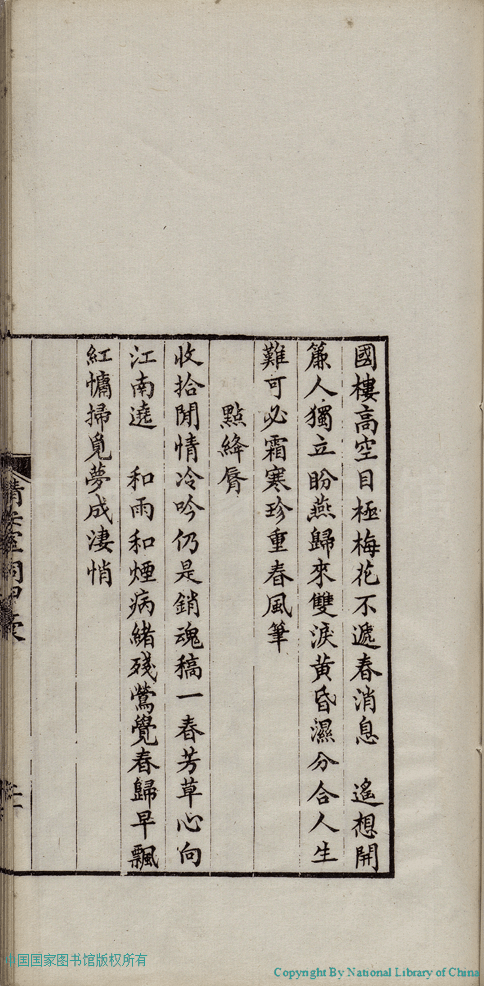 國樓高空目極梅花不遞春消息　遙想開
簾人獨立盼燕歸來雙淚黃昏濕分合人生
難可必霜寒珍重春風筆
點絳脣
收拾閒情冷吟仍是銷魂稿一春芳草心向
江南遶　和雨和煙病緒殘鶯覺春歸早飄
紅慵掃覓夢成淒悄
中国国家图书馆版权所有
Copyright By National Library of China